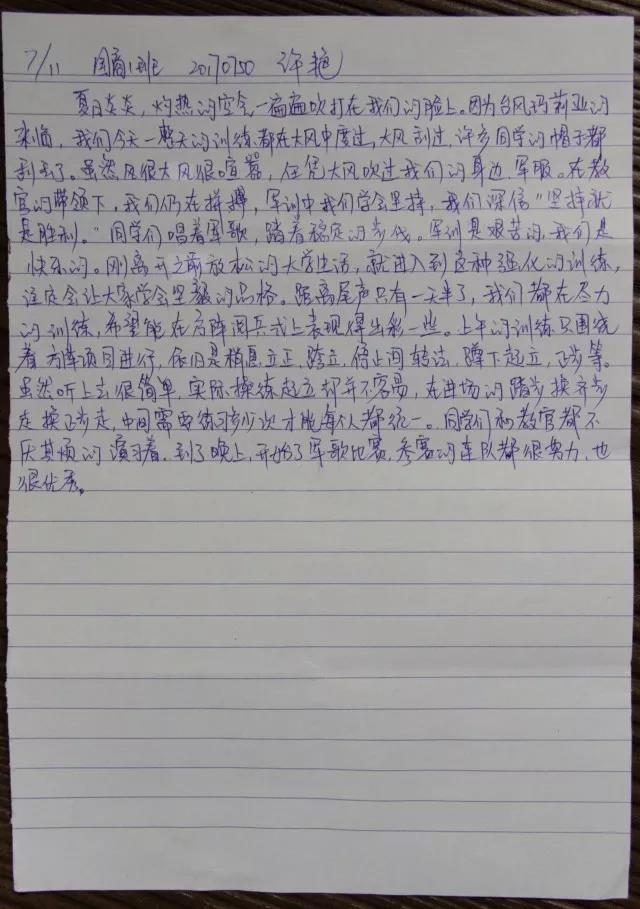 7/11 国商1班 20170750 许艳
夏日炎炎，灼热的空气一遍遍吹打在我们的脸上。因为台风玛莉亚的
来临，我们今天一整天的训练都在大风中度过，大风刮过，许多同学的帽子都
刮丢了。虽然风很大风很喧嚣，任凭大风吹过我们的身边、军服。在教
官的带领下，我们仍在拼搏，军训中我们学会坚持，我们深信"坚持就
是胜利。"同学们唱着军歌，踏着稳定的步伐。军训是艰苦的，我们是
快乐的。刚离开之前放松的大学生活，就进入到这种强化的训练，
注定会让大家学会坚毅的品格。距离尾声只有一天半了，我们都在尽力
的训练，希望能在后阵阅兵式上表现得出彩一些。上午的训练只围绕
着方阵项目进行，依旧是稍息、立正、跨立、停止间转法、蹲下起立、正步等。
虽然听上去很简单，实际操练起立却并不容易，在进场的踏步换齐步
走换正步走，中间需要练习多少次才能每个人都统一。同学们和教官都不
厌其烦的演习着，到了晚上，开始了军歌比赛，参赛的连队都很努力，也
很优秀。